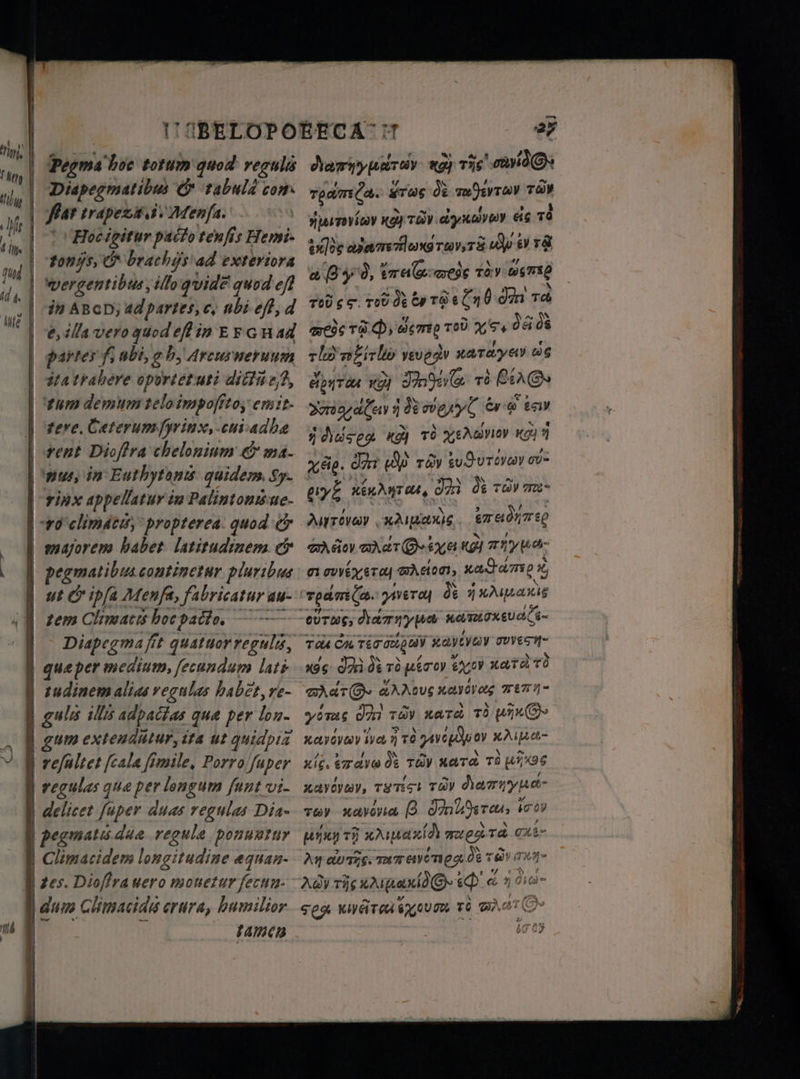 BELOPOEECA
27
Pegma hoc totum quod regulis
Diapegmatibus & tabulâ con-
stat trapeza sive Mensa.
Hoc igitur pacto tensis Hemi-
tonijs, & brachijs ad exteriora
vergentibus, illo quidē quod est
in ABCD, ad partes, c, ubi est, d
e, illa vero quod est in EFGH ad
partes f, ubi, g h, Arcus nervum
ita trahere oportet uti dictū est,
tum demum telo imposito, emit-
tere. Caeterum syrinx, cui adhae
rent Diostra chelonium & ma-
nus, in Euthytonis quidem, Sy-
rinx appellatur in Palintonis ve-
ro climacis, propterea quod &
majorem habet latitudinem &
pegmatibus continetur pluribus
ut & ipsa Mensa, fabricatur au-
tem Climacis hoc pacto.
Diapegma fit quatuor regulis,
quae per medium, secundum lati
tudinem alias regulas habēt, re-
gulis illis adpactas quae per lon-
gum extenduntur, ita ut quidpiā
resultet scalae simile, Porro super
regulas quae per longum sunt vi-
delicet super duas regulas Dia-
pegmatis duae regulae ponuntur
Climacidem longitudine aequan-
tes. Diostra vero movetur secun-
dum Climacidis crura, humilior
tamen
διαπηγμάτων καὶ τῆς σανίδος
τράπεζα. οὕτως δὲ ταθέντων τῶν
ἡμιτονίων καὶ τῶν ἀγκώνων εἰς τὸ
τοῦ δὲ ἐν τῷ ε ζ η θ ἐπὶ τὰ
εἴρηται καὶ
ἡ δὲ σύριγξ ἐν ᾧ ἐστιν
ἡ διώστρα καὶ τὸ χελώνιον καὶ ἡ
χείρ. ἐπὶ μὲν τῶν εὐθυτόνων σύ-
ριγξ κέκληται, ἐπὶ δὲ τῶν πα-
λιντόνων κλιμακὶς ἐπειδήπερ
πλεῖον πλάτος ἔχει καὶ πήγμα-
σι συνέχεται πλείοσι, καθάπερ ἡ
τράπεζα. γίνεται δὲ ἡ κλιμακὶς
οὕτως, διάπηγμα κατασκευάζε-
ται ἐκ τεσσάρων κανόνων συνεστη-
κὸς ἐπὶ δὲ τὸ μέσον ἔχον κατὰ τὸ
πλάτος ἄλλους κανόνας πεπη-
γότας ἐπὶ τῶν κατὰ τὸ μῆκος
κανόνων ἵνα ᾖ τὸ γινόμενον κλιμα-
κίς. ἐπάνω δὲ τῶν κατὰ τὸ μῆκος
κανόνων, τουτέστι τῶν διαπηγμά-
των κανόνια β ἐπιτίθεται, ἴσον
μήκη τῇ κλιμακίδι παρὰ τὰ σκέ-
λη αὐτῆς. ταπεινότερα δὲ τῶν σκε-
λῶν τῆς κλιμακίδος ἐφ' ἃ ἡ διώ-
στρα κινεῖται ἔχουσα τὸ πλάτος
ἴσον